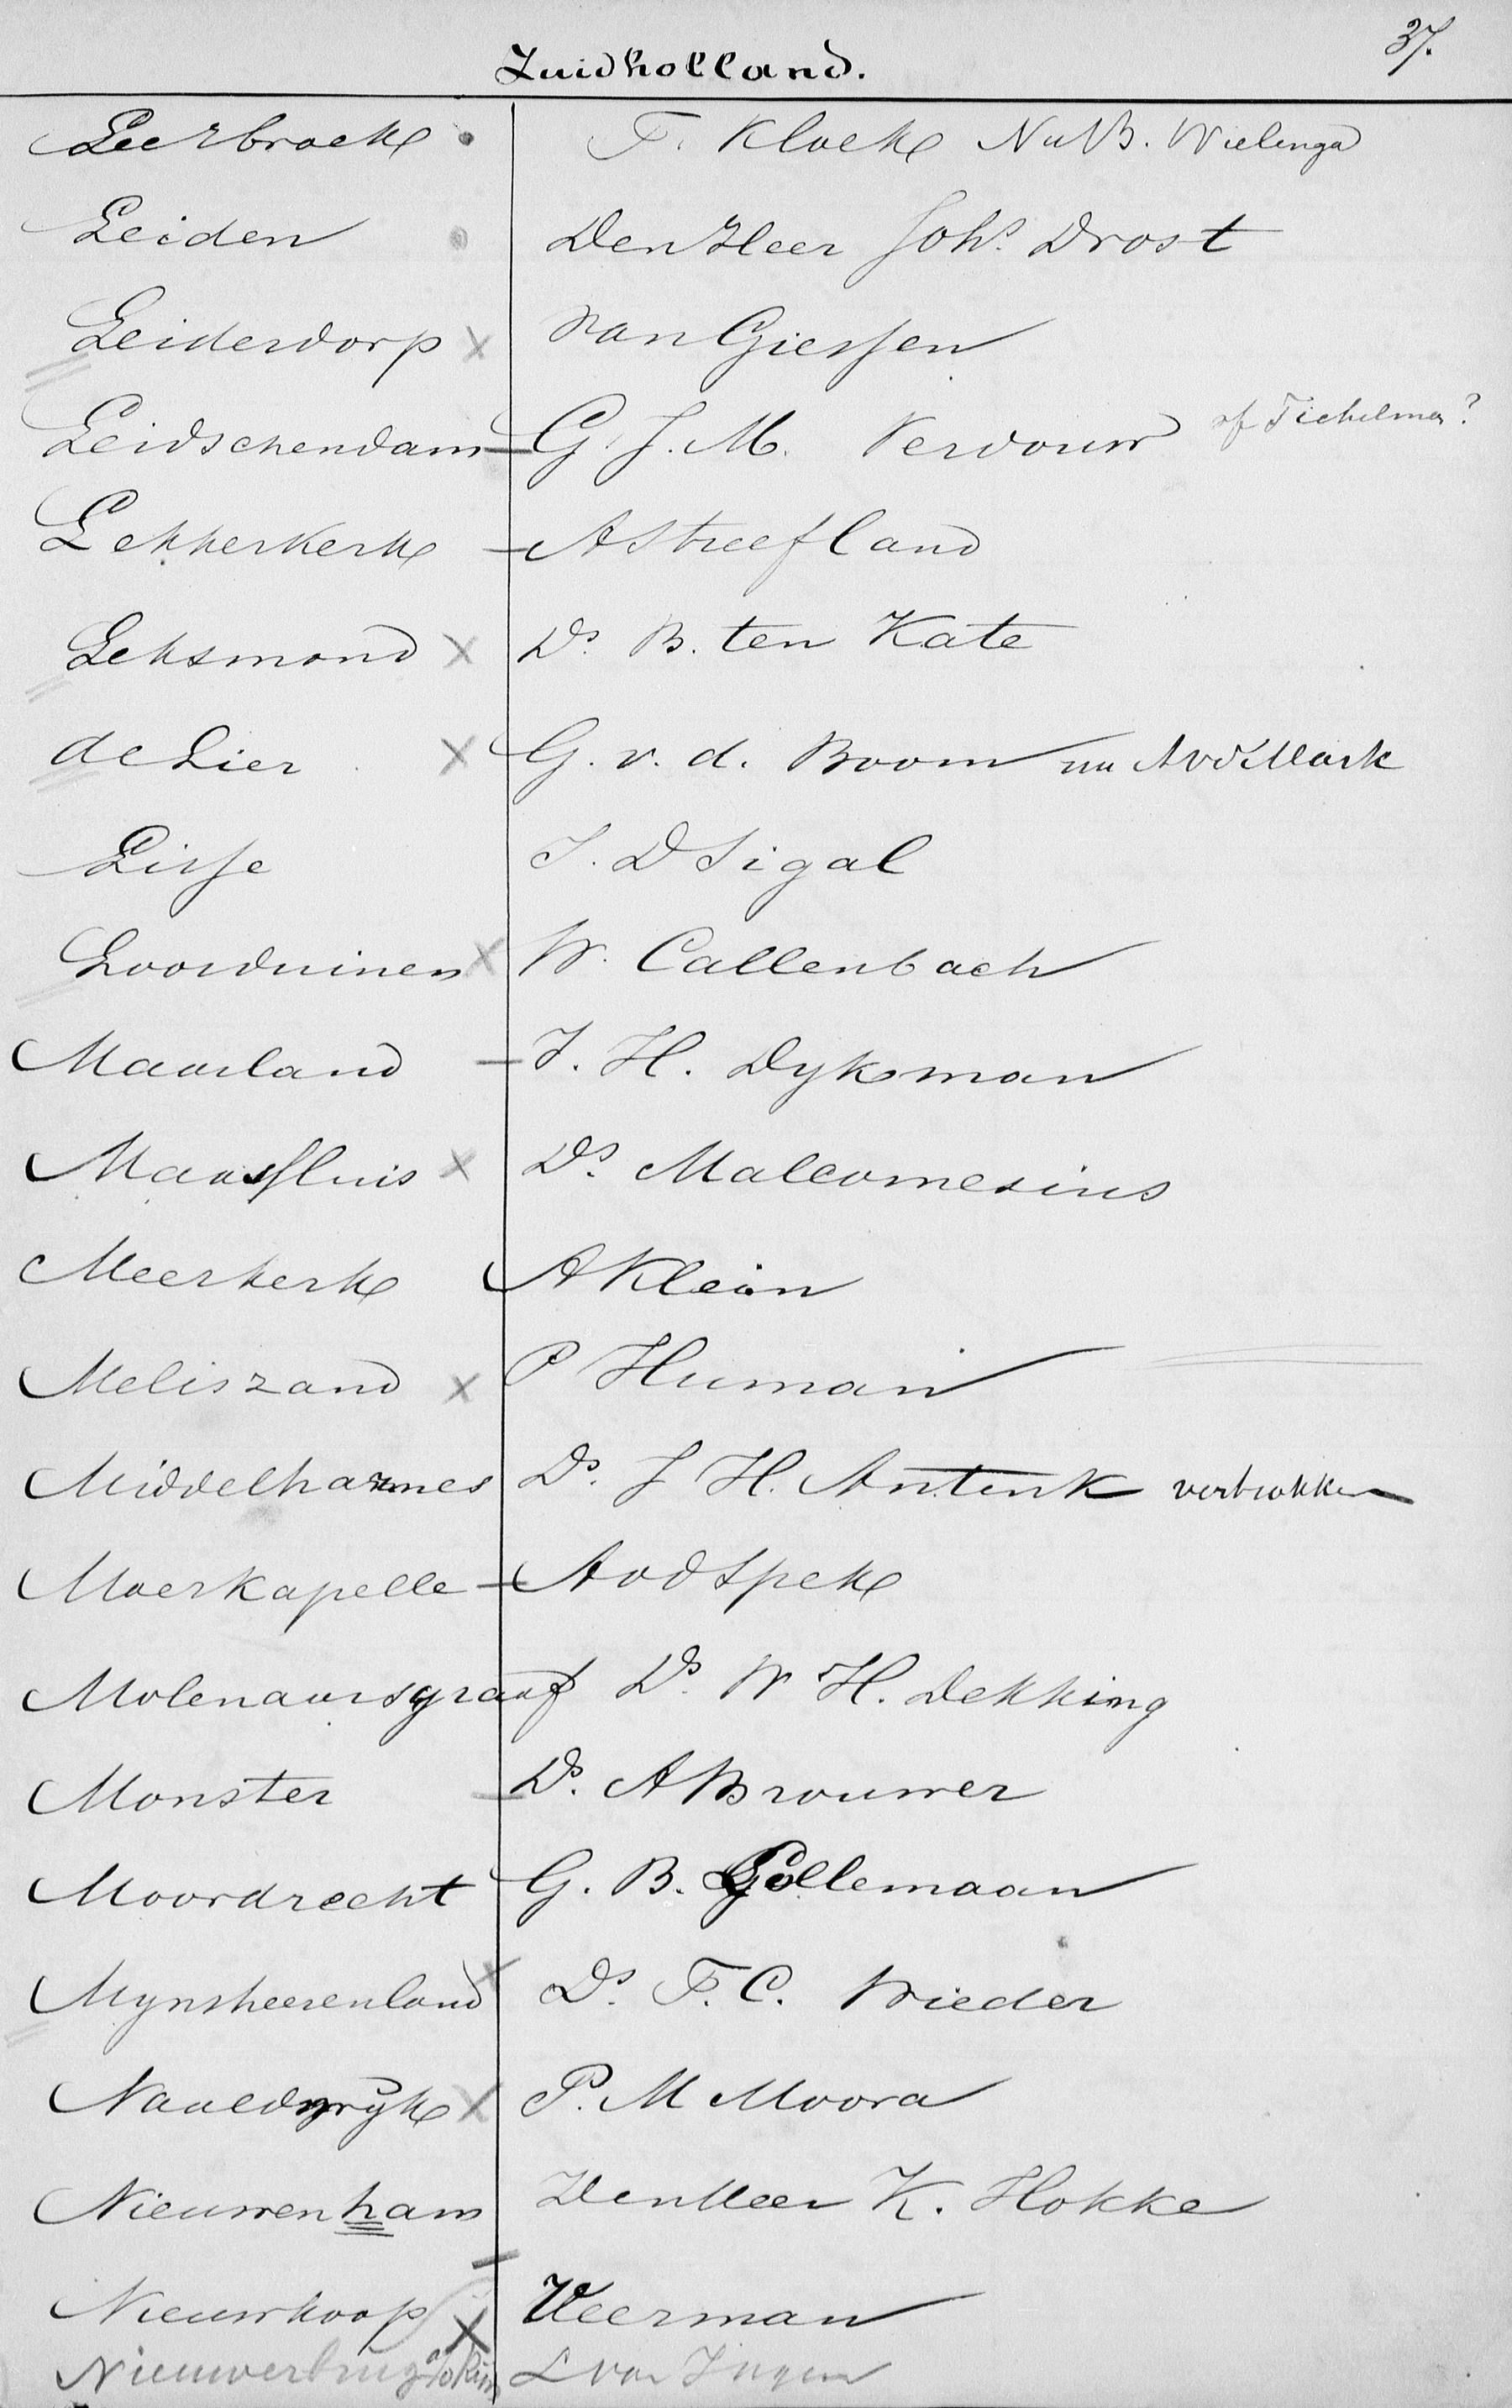 37.
Zuidholland.
Leerbroek . F. Kloek Nu B. Wielenga
Leiden Den Heer Johs. Drost
Leiderdorp x van Giessen
Leidschendam - G. J. M. Verdouw of Tichelman?
Lekkerkerk - A Streefland
Leksmond x Ds. B. ten Kate
de Lier x G. v. d. Boom nu A vd Mark
Lisse J. D Sigal
Loosduinen x W. Callenbach
Maasland - J. H. Dyksman
Maassluis x Ds. Malcomesius
Meerkerk A Klein
Meliszand x P Human
Middelharnes Ds. J H. Antink vertrokken
Moerkapelle - A v d Spek
Molenaarsgraaf Ds. W H. Dekking
Monster - Ds. A Brouwer
Moordrecht G. B. Gollemaan
Mynsheerenland x Ds. F. C. Wieder
Naaldwyk x P. M Moora
Nieuwenham Den Heer K. Hokke
Nieuwkoop x Veerman
Nieuwerbrug a/d Rijn L van Ingen